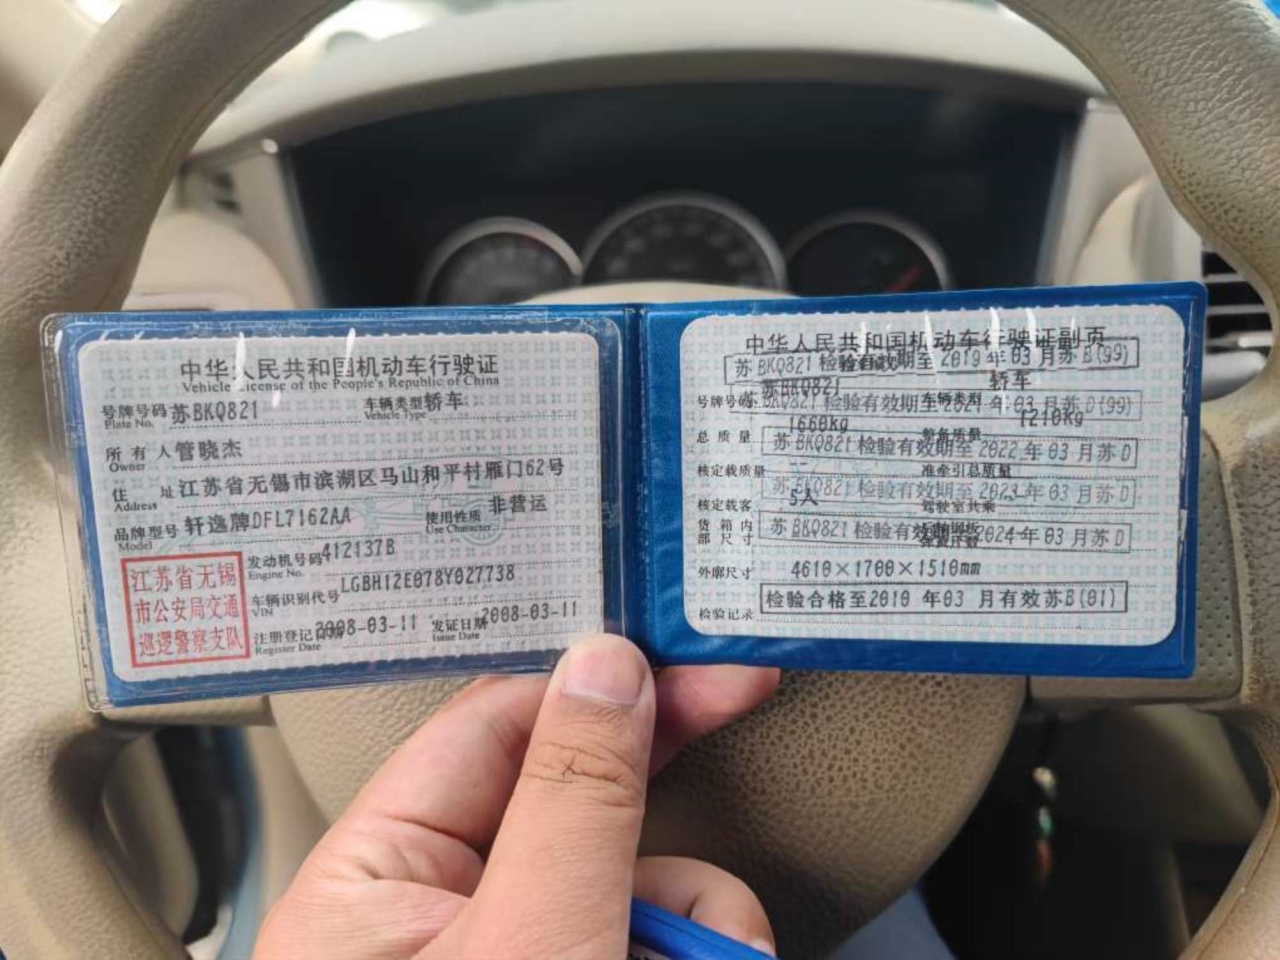 中华人民共和国机动车行驶证
Vehicle License of the People's Republic of China
号牌号码 苏BKQ821 车辆类型 轿车
Plate No. Vehicle Type
所有人 管晓杰
Owner
住址 江苏省无锡市滨湖区马山和平村雁门62号
Address
品牌型号 轩逸牌DFL7162AA 使用性质 非营运
Model Use Character
江苏省无锡
市公安局交通
巡逻警察支队
发动机号码 412137B
Engine No.
车辆识别代号 LGBH12E078Y027738
VIN
注册登记日期 2008-03-11 发证日期 2008-03-11
Register Date Issue Date
中华人民共和国机动车行驶证副页
苏BKQ821 检验有效期至2019年03月苏B(99)
苏BKQ821 轿车
号牌号码 车辆类型
苏BKQ821 检验有效期至2021年03月苏D(99)
1660kg 1210kg
总质量 整备质量
苏BKQ821 检验有效期至2022年03月苏D
核定载质量 -- 准牵引总质量
苏BKQ821 检验有效期至2023年03月苏D
核定载客 5人 驾驶室共乘
货箱内部尺寸
苏BKQ821 检验有效期至2024年03月苏D
外廓尺寸 4610×1700×1510mm
检验记录 检验合格至2010年03月有效苏B(01)